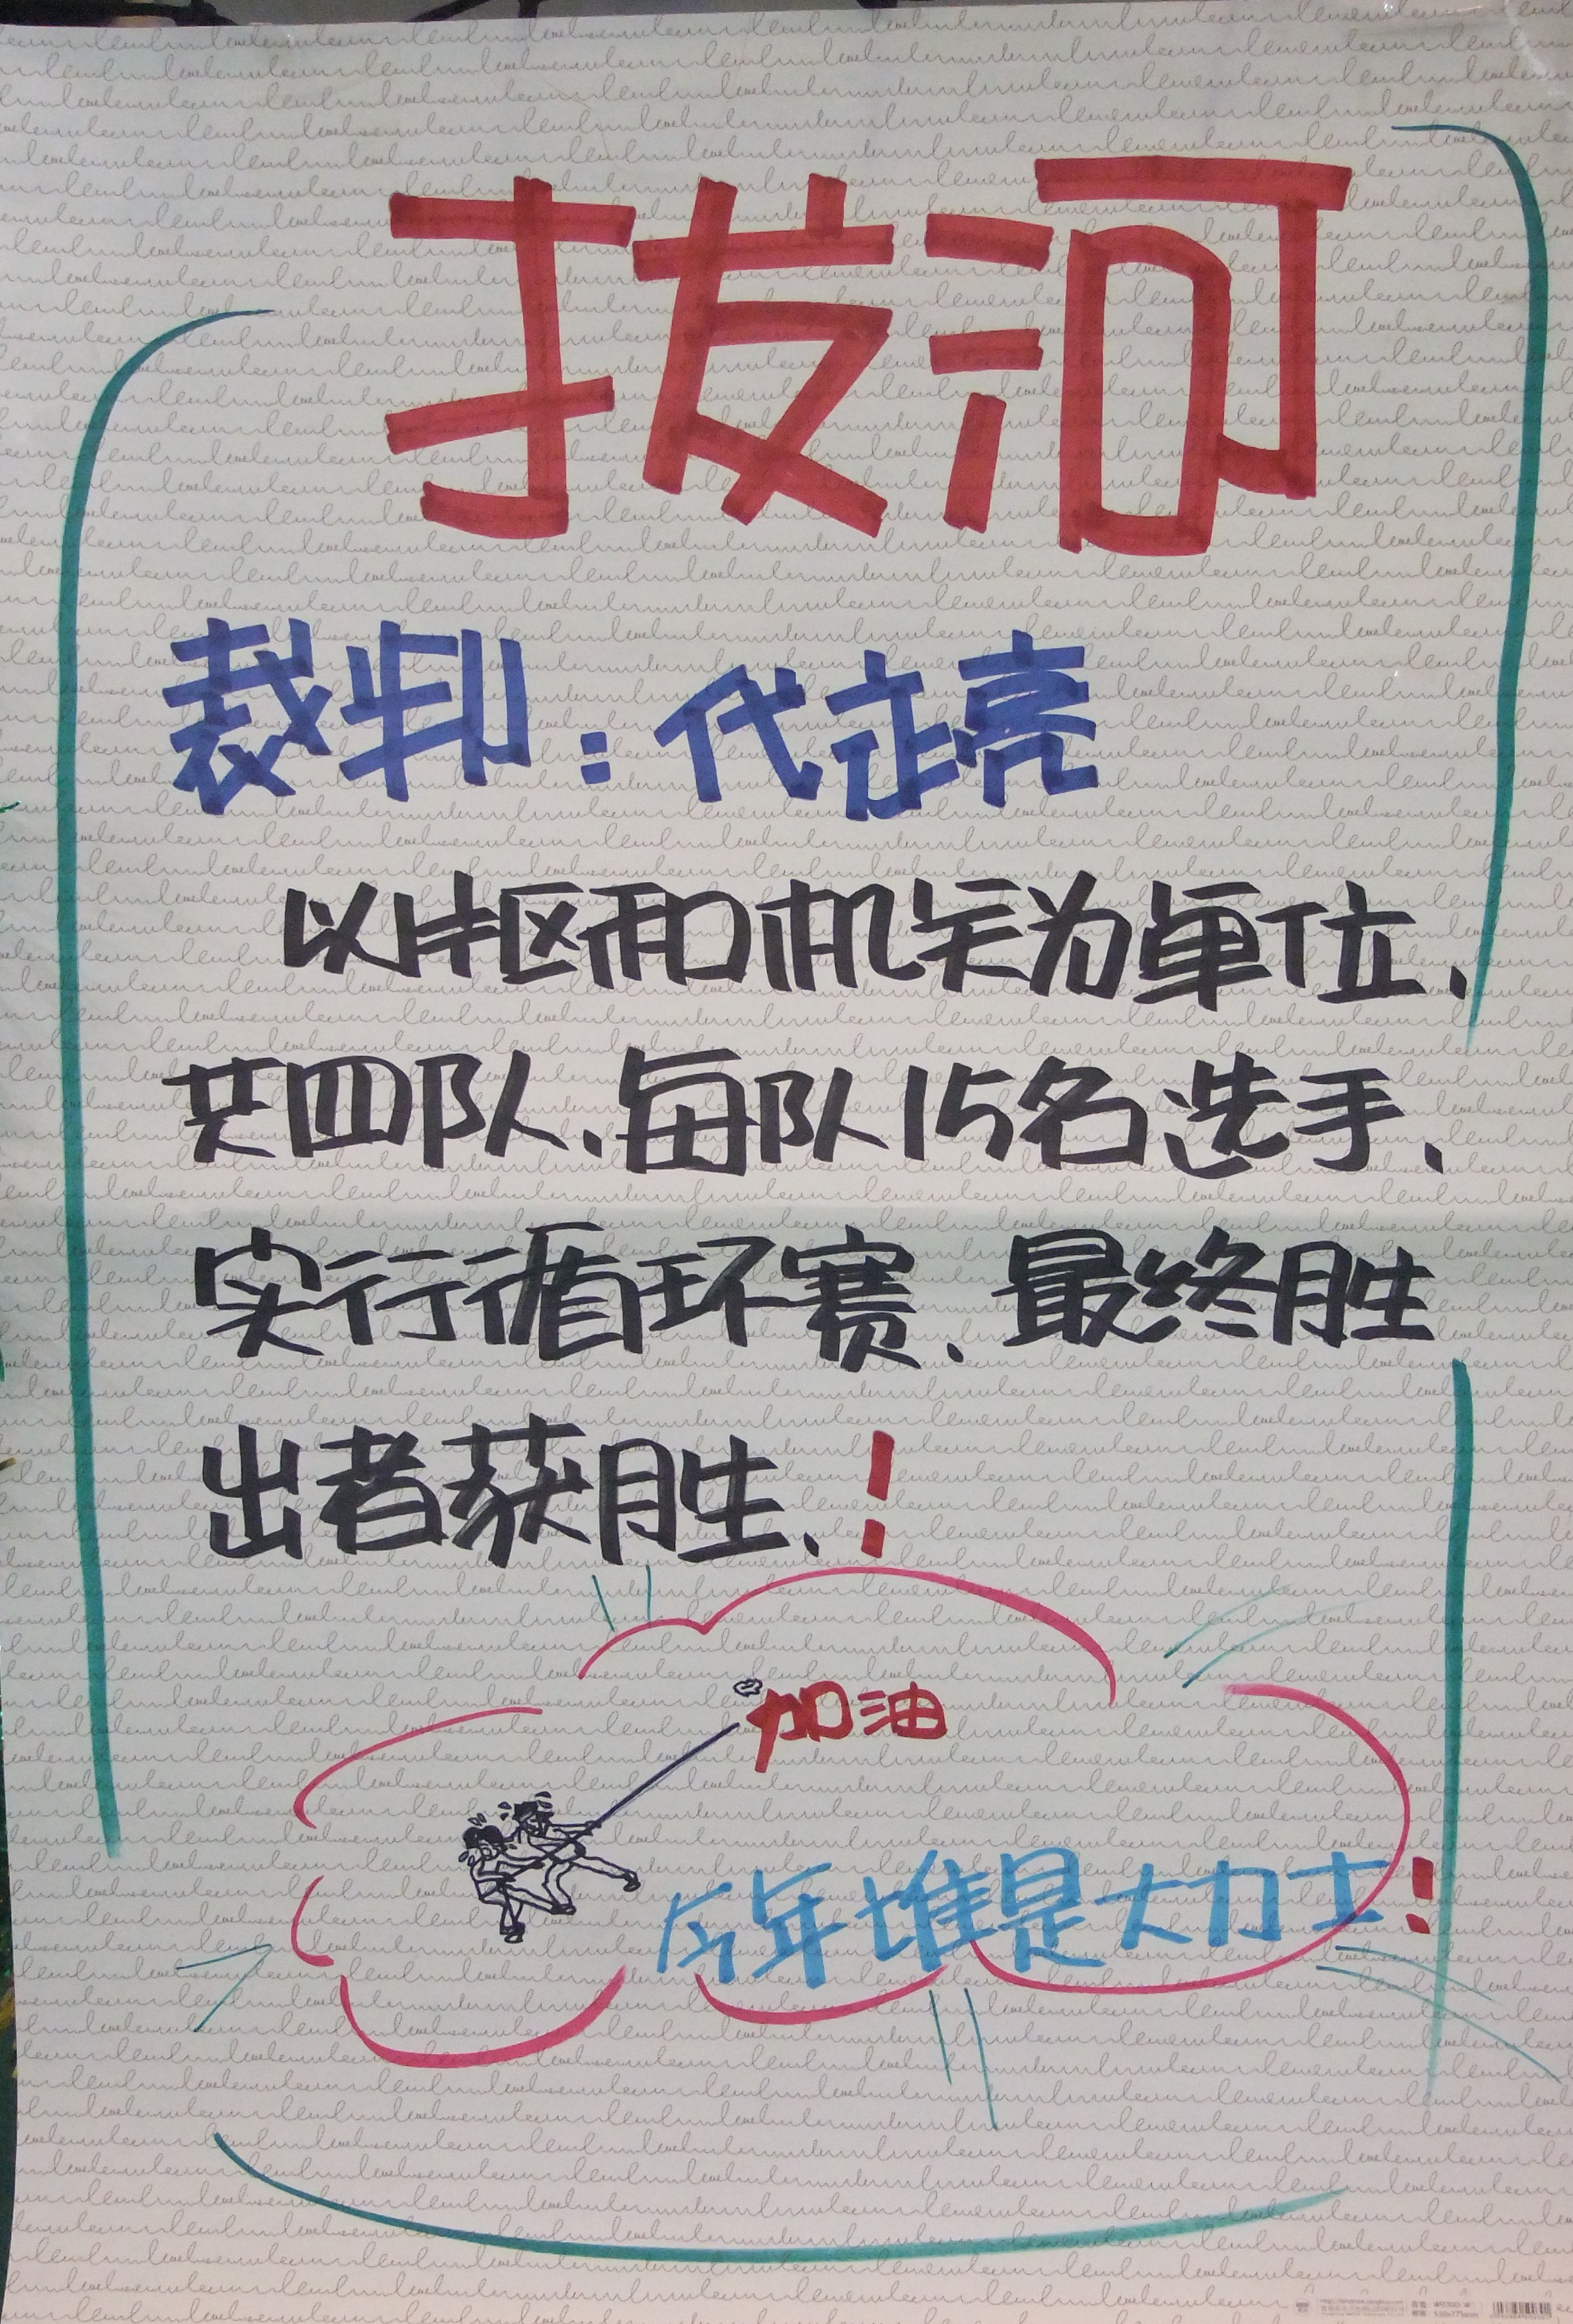 拔河
裁判：代立亮
以片区和机关为单位、
共四队、每队15名选手、
实行循环赛、最终胜
出者获胜、！
加油
今年谁是大力士！